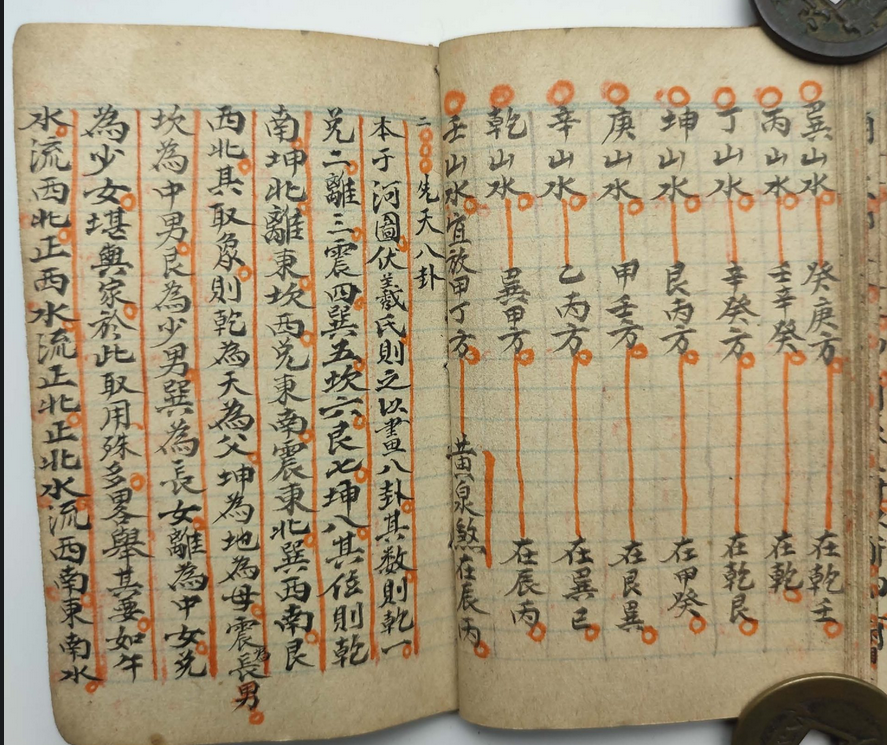 巽山水 癸庚方 在乾壬
丙山水 壬辛癸 在乾
丁山水 辛癸方 在乾艮
坤山水 艮丙方 在甲癸
庚山水 甲壬方 在艮巽
辛山水 乙丙方 在巽巳
乾山水 巽甲方 在辰丙
壬山水宜放甲丁方 黄泉煞在辰丙
二〇〇〇先天八卦
本于河圖伏羲氏則之以畫八卦其数則乾一
兑二離三震四巽五坎六艮七坤八其位則乾
南坤北離東坎西兑東南震東北巽西南艮
西北其取象則乾為天為父坤為地為母震為長男
坎為中男艮為少男巽為長女離為中女兑
為少女堪輿家於此取用殊多畧舉其要如午
水流西北正西水流正北正北水流西南東南水